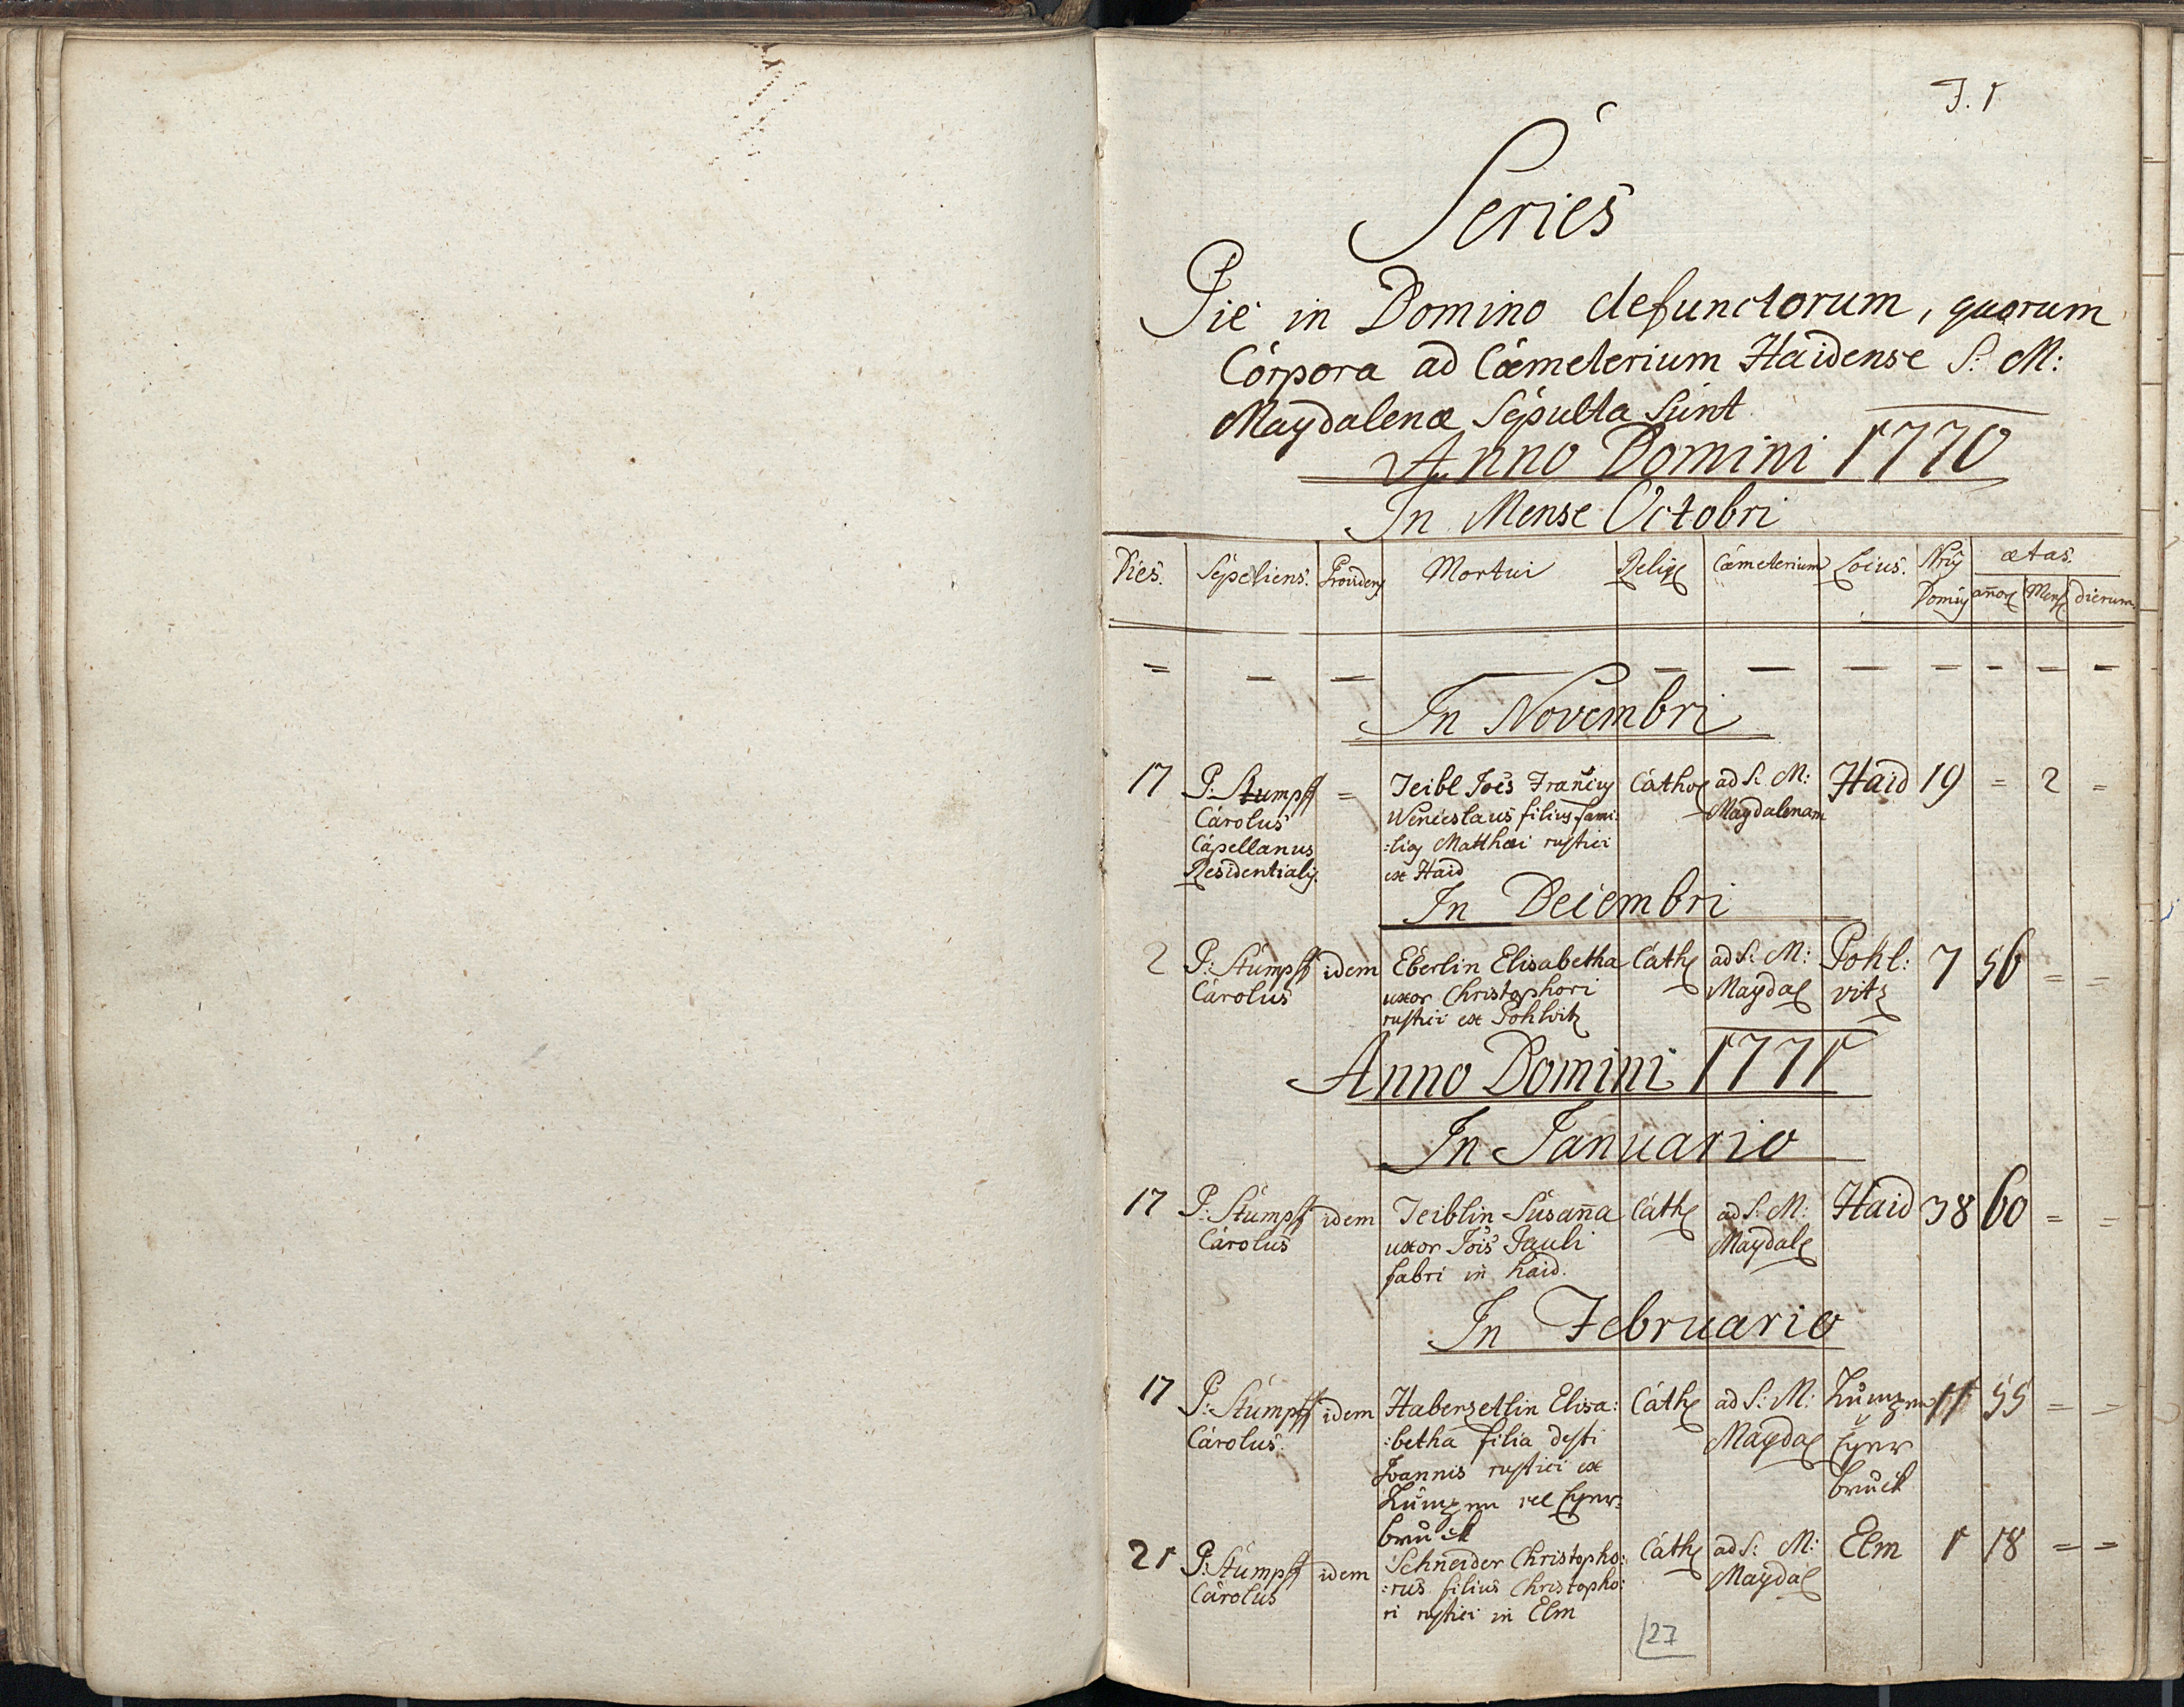 F. 1
Series
Pie in Domino defunctorum, quorum
Corpora ad Cœmeterium Haidense S: M:
Magdalenæ Sepulta Sunt
Anno Domini 1770
In Mense Octobri
Dies. Sepeliens. Providens Mortui Relig Cœmeterium Locus. Nrus Domus ætas. añor Mens dierum.
= – = – – – – – – –
In Novembri
17 P. Stumpff = Teibl Jois Francius Cathol ad S. M: Haid 19 = 2 =
Carolus Wenceslaus filius fami: Magdalenam
Capellanus :lias Matthæi rustici
Residentialis. ex Haid
In Decembri
2 P: Stumpff idem Eberlin Elisabetha Cath ad S: M: Pohl: 7 56 = =
Carolus uxor Christophori Magdal vitz
rustici ex Pohlvitz
Anno Domini 1771
In Januario
17 P: Stumpff idem Teiblin Susaña Cath ad S: M: Haid 38 60 = =
Carolus uxor Jois Pauli Magdal
fabri in haid.
In Februario
17 P: Stumpff idem Haberzetlin Elisa: Cath ad S: M: 11 55 = =
Carolus. :betha filia defti Magdal Eger
Joannis rustici ex bruck
vel Eger=
bruck
21 P: Stumpff idem Schneider Christopho: Cath ad S: M: Elm 1 18 = =
Carolus :rus filius Christopho: Magdal
ri rustici in Elm
27